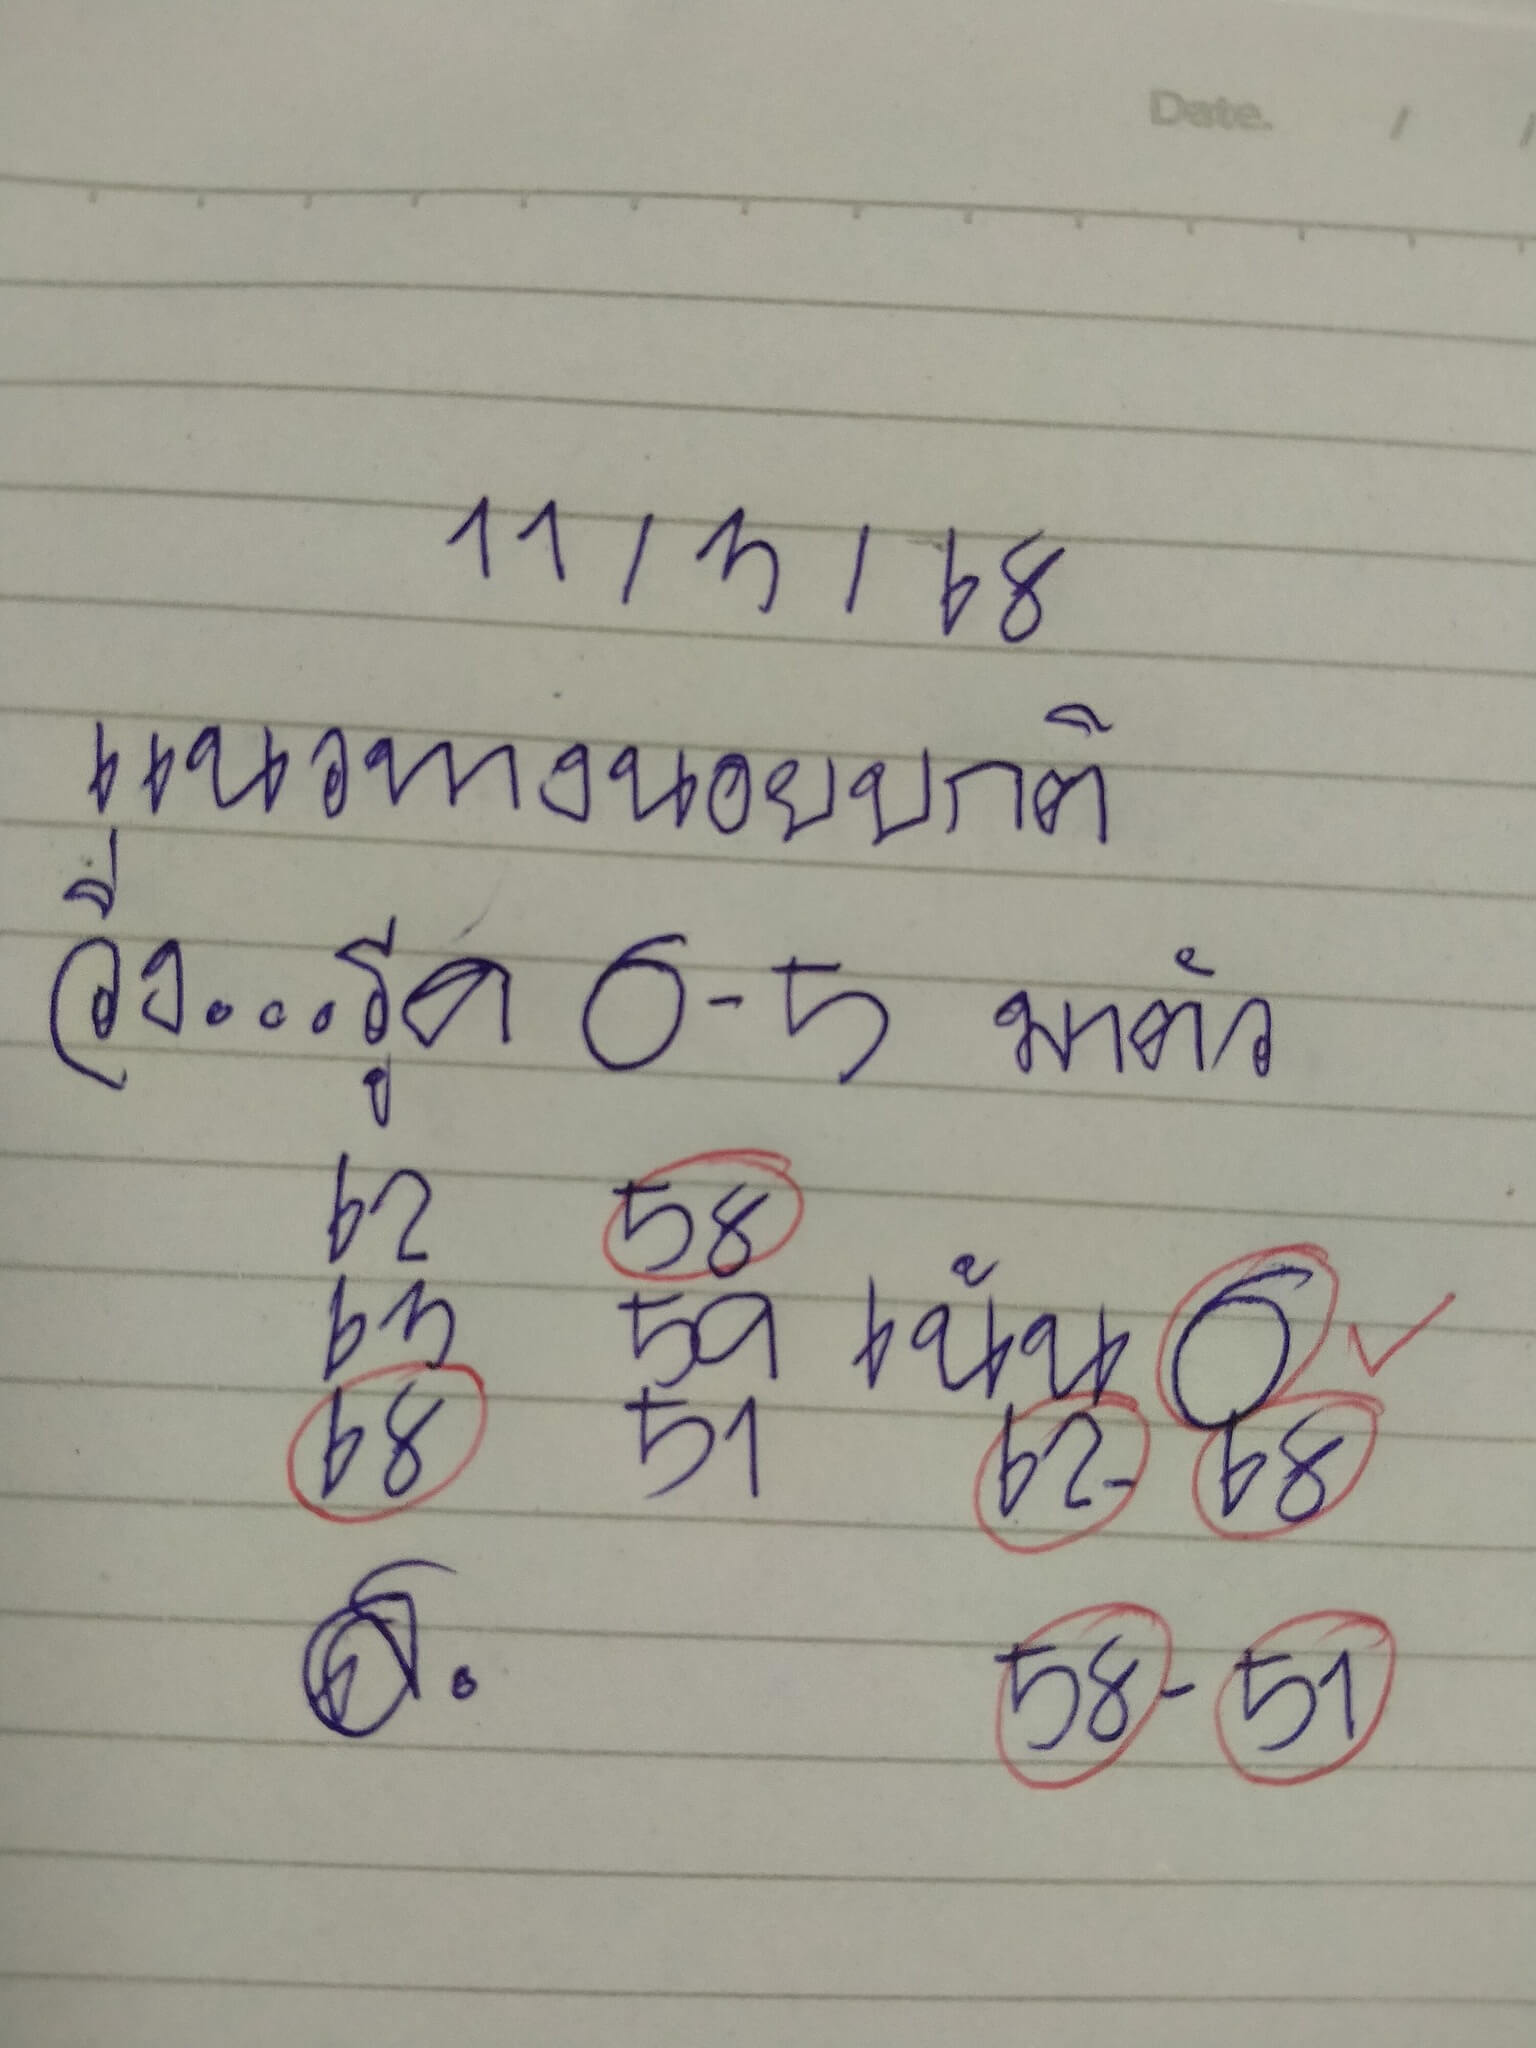 Date. / /
11 / 3 / 68
แนวทางนอยปกติ
วิ่ง...รูด 6-5 มาตัว
62 58
63 59 เน้น 6 ✓
68 51 62-68
58-51